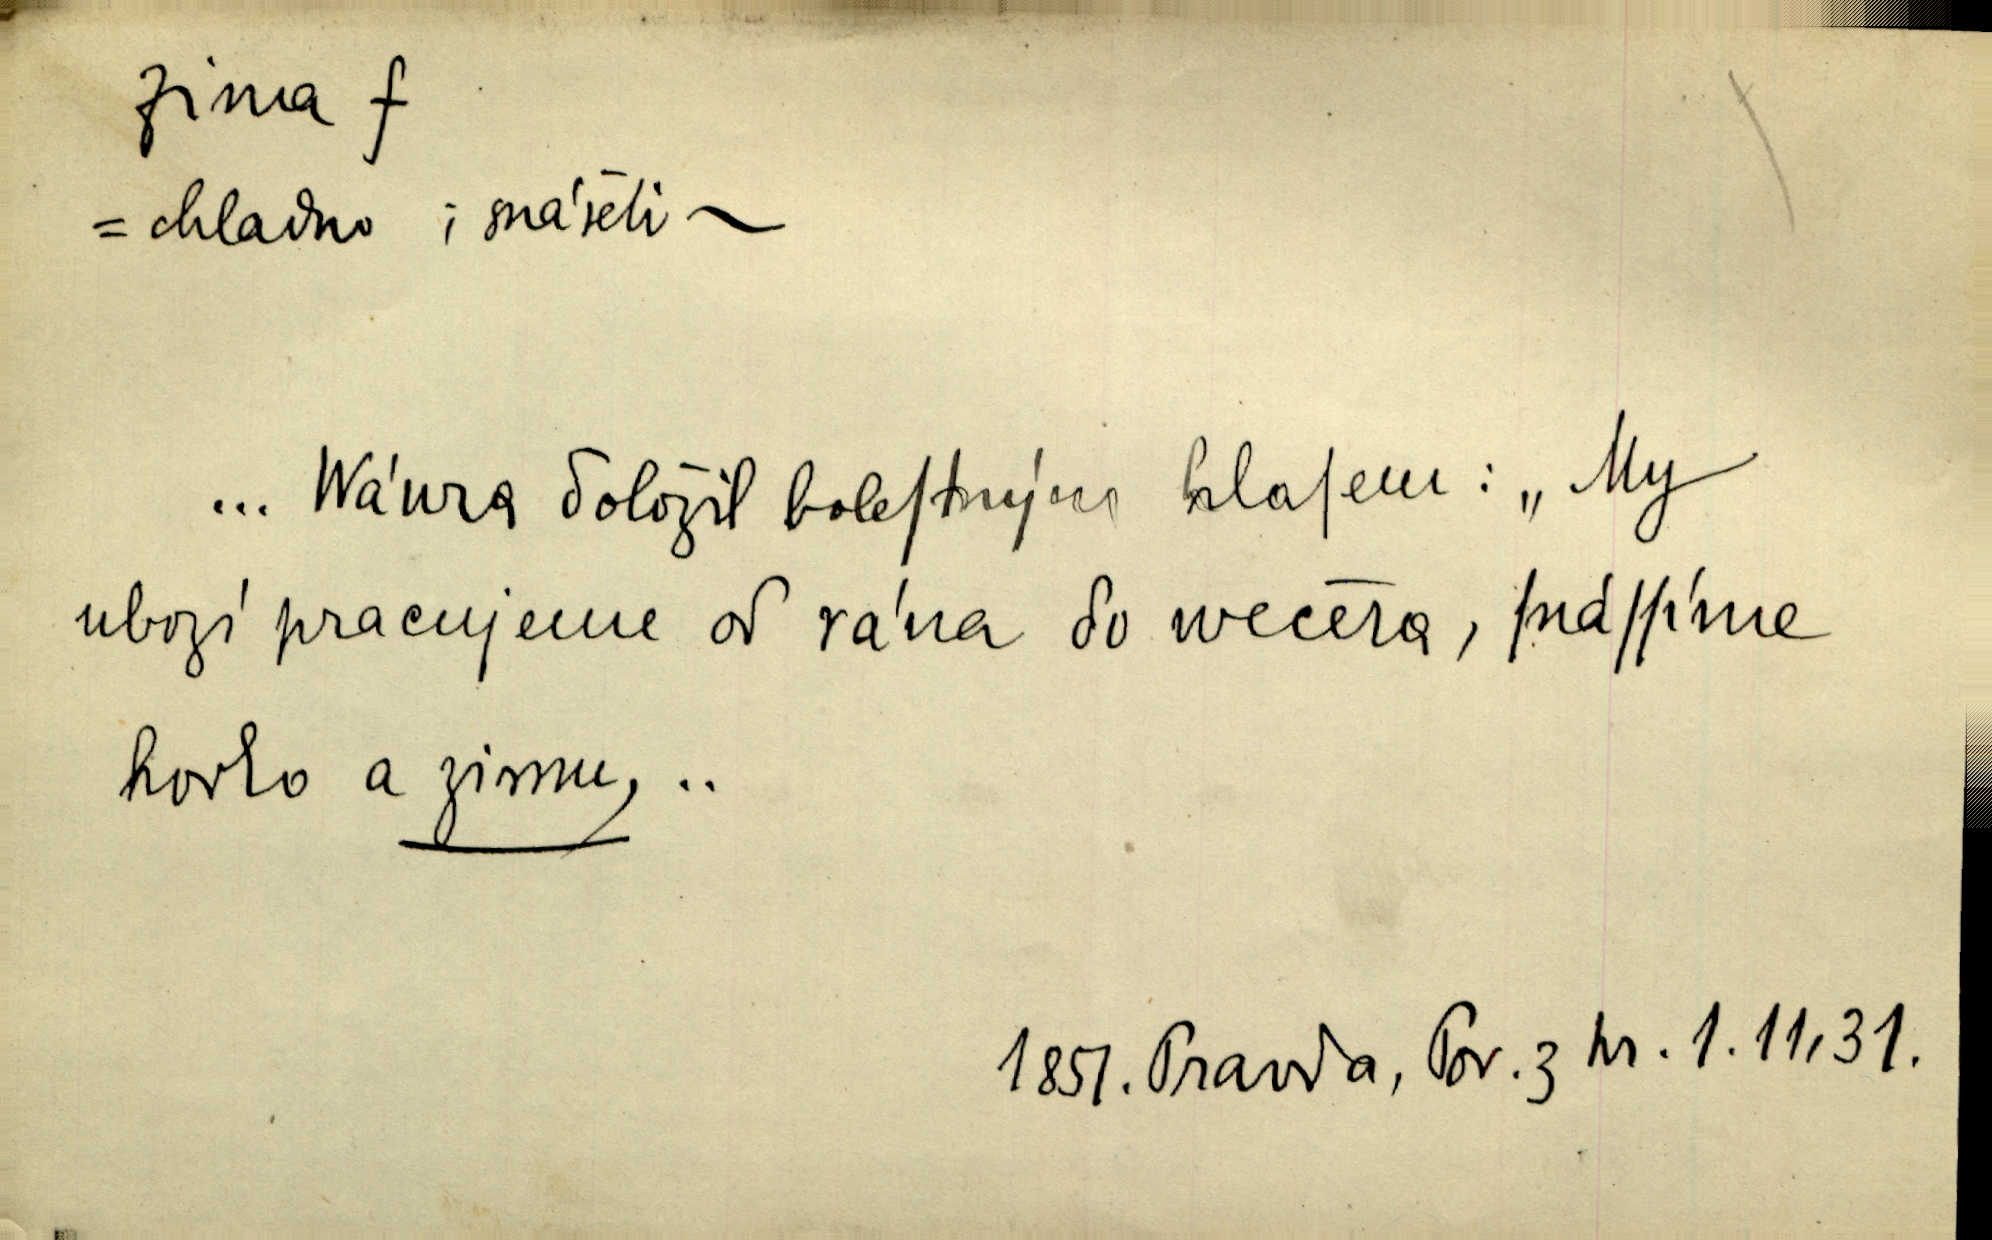 zima f
= chladno ; snášeti ~
... Wávra doložil boleſtným hlaſem : „My
ubozí pracujeme od rána do wečera, ſnáſſíme
horko a zimu, ..
1851. Pravda, Pov. z kr. 1. 11, 31.